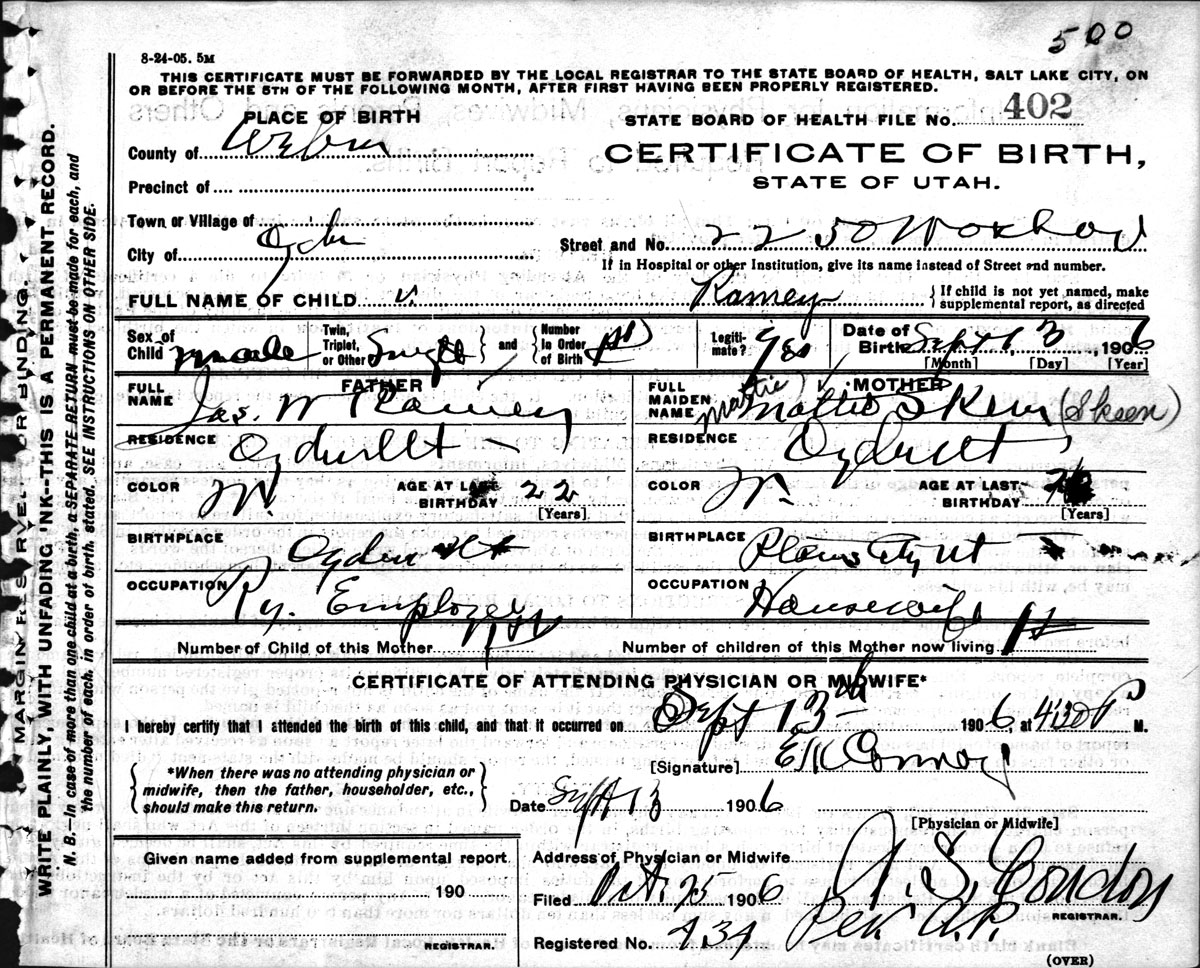 500
8-24-05. 5M
THIS CERTIFICATE MUST BE FORWARDED BY THE LOCAL REGISTRAR TO THE STATE BOARD OF HEALTH, SALT LAKE CITY, ON
OR BEFORE THE 5TH OF THE FOLLOWING MONTH, AFTER FIRST HAVING BEEN PROPERLY REGISTERED.
PLACE OF BIRTH
STATE BOARD OF HEALTH FILE No. 402
County of Weber
CERTIFICATE OF BIRTH,
STATE OF UTAH.
Precinct of
Town or Village of
City of Ogden
Street and No. 2250
If in Hospital or other Institution, give its name instead of Street and number.
FULL NAME OF CHILD Ramey
{If child is not yet named, make supplemental report, as directed
Sex of Child male
Twin, Triplet, or Other Single } and { Number In Order of Birth 1st
Legitimate? Yes
Date of Birth Sept 13, 1906
[Month] [Day] [Year]
FATHER
FULL NAME Jas. W Ramey
RESIDENCE Ogden Ut
COLOR W.
AGE AT LAST BIRTHDAY 22
[Years]
BIRTHPLACE Ogden Ut
OCCUPATION Ry. Employee
MOTHER
FULL MAIDEN NAME Mattie Skeen (Skeen)
Mattie
RESIDENCE Ogden Ut
COLOR W.
AGE AT LAST BIRTHDAY
[Years]
BIRTHPLACE Plain City Ut
OCCUPATION Housewife
Number of Child of this Mother 1st
Number of children of this Mother now living 1
CERTIFICATE OF ATTENDING PHYSICIAN OR MIDWIFE*
I hereby certify that I attended the birth of this child, and that it occurred on Sept 13th 1906, at 4:30 P M.
{*When there was no attending physician or midwife, then the father, householder, etc., should make this return.}
[Signature] E M Conroy
Date Sept 13 1906
[Physician or Midwife]
Given name added from supplemental report
190
REGISTRAR.
Address of Physician or Midwife
Filed Oct. 25 1906
Registered No. 434
REGISTRAR.
(OVER)
MARGIN RESERVED FOR BINDING.
WRITE PLAINLY, WITH UNFADING INK--THIS IS A PERMANENT RECORD.
N. B.—In case of more than one child at a birth, a SEPARATE RETURN must be made for each, and
the number of each, in order of birth, stated. SEE INSTRUCTIONS ON OTHER SIDE.